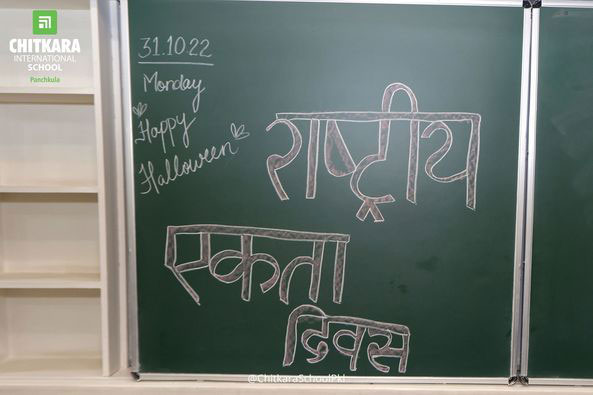 CHITKARA
INTERNATIONAL
SCHOOL
Panchkula
31.10.22
Monday
Happy
Halloween
राष्ट्रीय
एकता
दिवस
@ChitkaraSchoolPkl